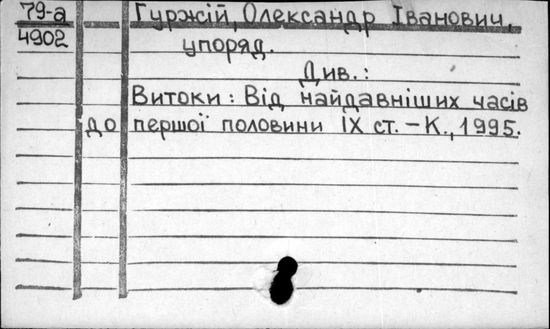 79-а Гуржій, Олександр Іванович,
4902 упоряд.
Див.:
Витоки: Від найдавніших часів
до першої половини IX ст. – К., 1995.